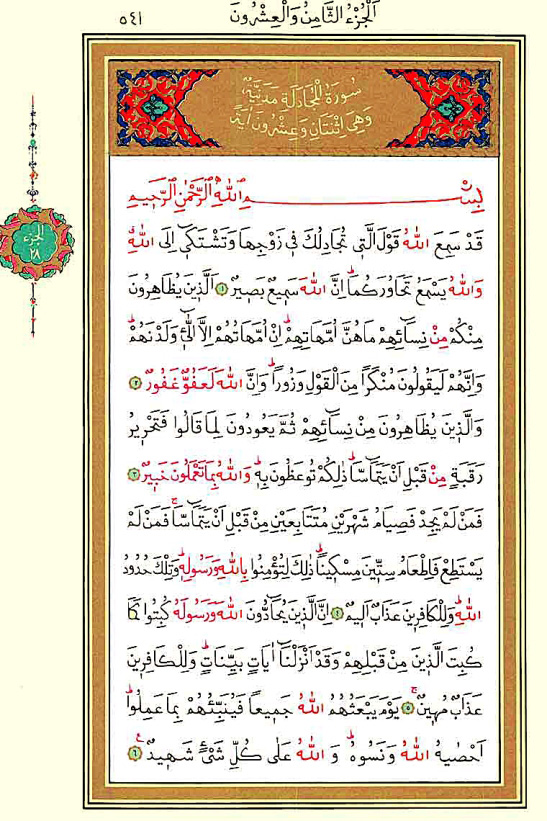 اَلْجُزْءُ الثَّامِنُ وَالْعِشْرُونَ
٥٤١
سُورَةُ الْمُجَادَلَةِ مَدَنِيَّةٌ
وَهِيَ اِثْنَتَانِ وَعِشْرُونَ اٰيَةً
بِسْمِ اللّٰهِ الرَّحْمٰنِ الرَّحِيمِ
الجزء
٢٨
قَدْ سَمِعَ اللّٰهُ قَوْلَ الَّتٖى تُجَادِلُكَ فٖى زَوْجِهَا وَتَشْتَكٖٓى اِلَى اللّٰهِۗ
وَاللّٰهُ يَسْمَعُ تَحَاوُرَكُمَاۜ اِنَّ اللّٰهَ سَمٖيعٌ بَصٖيرٌ ﴿١﴾ اَلَّذٖينَ يُظَاهِرُونَ
مِنْكُمْ مِنْ نِسَٓائِهِمْ مَا هُنَّ اُمَّهَاتِهِمْۜ اِنْ اُمَّهَاتُهُمْ اِلَّا الّٰٓئٖ وَلَدْنَهُمْۜ
وَاِنَّهُمْ لَيَقُولُونَ مُنْكَرًا مِنَ الْقَوْلِ وَزُورًاۜ وَاِنَّ اللّٰهَ لَعَفُوٌّ غَفُورٌ ﴿٢﴾
وَالَّذٖينَ يُظَاهِرُونَ مِنْ نِسَٓائِهِمْ ثُمَّ يَعُودُونَ لِمَا قَالُوا فَتَحْرٖيرُ
رَقَبَةٍ مِنْ قَبْلِ اَنْ يَتَمَٓاسَّاۜ ذٰلِكُمْ تُوعَظُونَ بِهٖۜ وَاللّٰهُ بِمَا تَعْمَلُونَ خَبٖيرٌ ﴿٣﴾
فَمَنْ لَمْ يَجِدْ فَصِيَامُ شَهْرَيْنِ مُتَتَابِعَيْنِ مِنْ قَبْلِ اَنْ يَتَمَٓاسَّاۚ فَمَنْ لَمْ
يَسْتَطِعْ فَاِطْعَامُ سِتّٖينَ مِسْكٖينًاۜ ذٰلِكَ لِتُؤْمِنُوا بِاللّٰهِ وَرَسُولِهٖۜ وَتِلْكَ حُدُودُ
اللّٰهِۜ وَلِلْكَافِرٖينَ عَذَابٌ اَلٖيمٌ ﴿٤﴾ اِنَّ الَّذٖينَ يُحَٓادُّونَ اللّٰهَ وَرَسُولَهُ كُبِتُوا كَمَا
كُبِتَ الَّذٖينَ مِنْ قَبْلِهِمْ وَقَدْ اَنْزَلْنَٓا اٰيَاتٍ بَيِّنَاتٍۜ وَلِلْكَافِرٖينَ
عَذَابٌ مُهٖينٌۚ ﴿٥﴾ يَوْمَ يَبْعَثُهُمُ اللّٰهُ جَمٖيعًا فَيُنَبِّئُهُمْ بِمَا عَمِلُواۜ
اَحْصٰيهُ اللّٰهُ وَنَسُوهُۜ وَاللّٰهُ عَلٰى كُلِّ شَيْءٍ شَهٖيدٌ۟ ﴿٦﴾